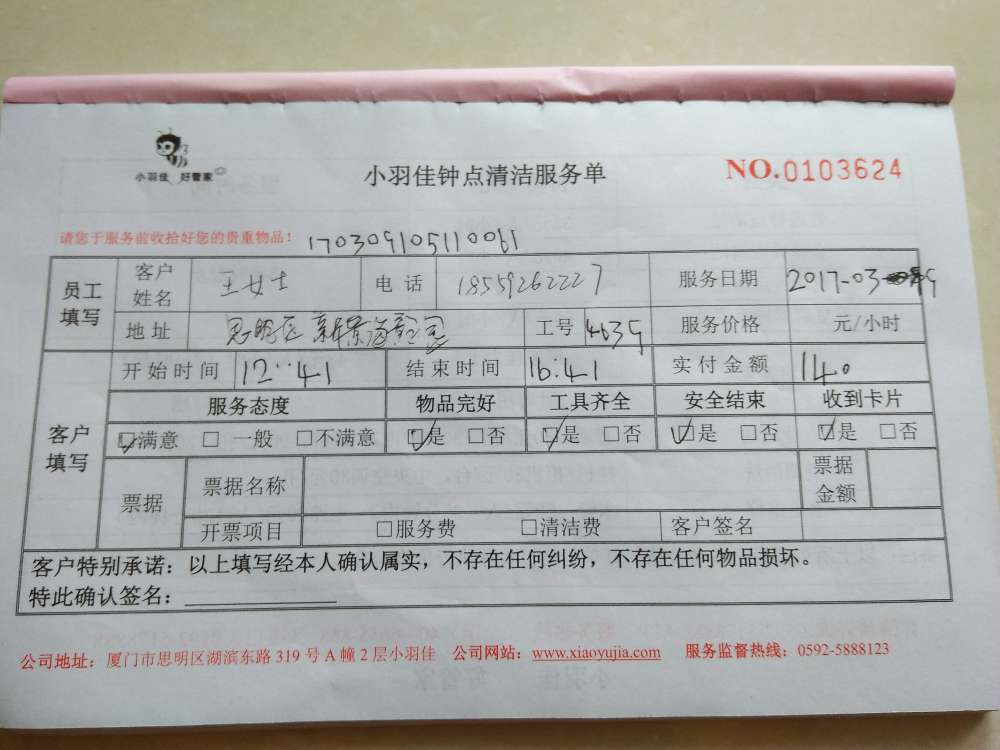 小羽佳 好管家
小羽佳钟点清洁服务单
NO.0103624
请您于服务前收拾好您的贵重物品！ 170309105110061
员工填写 客户姓名 王女士 电话 18559262227 服务日期 2017-03-09
地址 思明区新景海韵园 工号 4639 服务价格 元/小时
客户填写 开始时间 12:41 结束时间 16:41 实付金额 140
服务态度 物品完好 工具齐全 安全结束 收到卡片
☑满意 □ 一般 □不满意 ☑是 □否 ☑是 □否 ☑是 □否 ☑是 □否
票据 票据名称 票据金额
开票项目 □服务费 □清洁费 客户签名
客户特别承诺：以上填写经本人确认属实，不存在任何纠纷，不存在任何物品损坏。
特此确认签名：
公司地址：厦门市思明区湖滨东路 319 号 A 幢 2 层小羽佳 公司网站：www.xiaoyujia.com 服务监督热线：0592-5888123